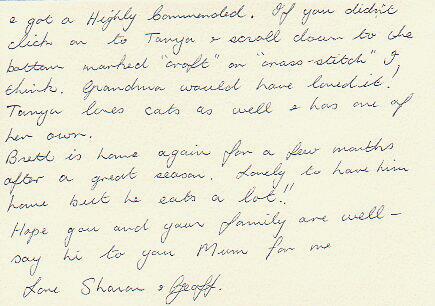 & got a Highly Commended. If you didn't
click on to Tanya & scroll down to the
bottom marked "craft" or "cross-stitch" I
think. Grandma would have loved it!
Tanya loves cats as well & has one of
her own.
Brett is home again for a few months
after a great season. Lovely to have him
home but he eats a lot!!
Hope you and your family are well -
say hi to you Mum for me
Love Sharon & Geoff.